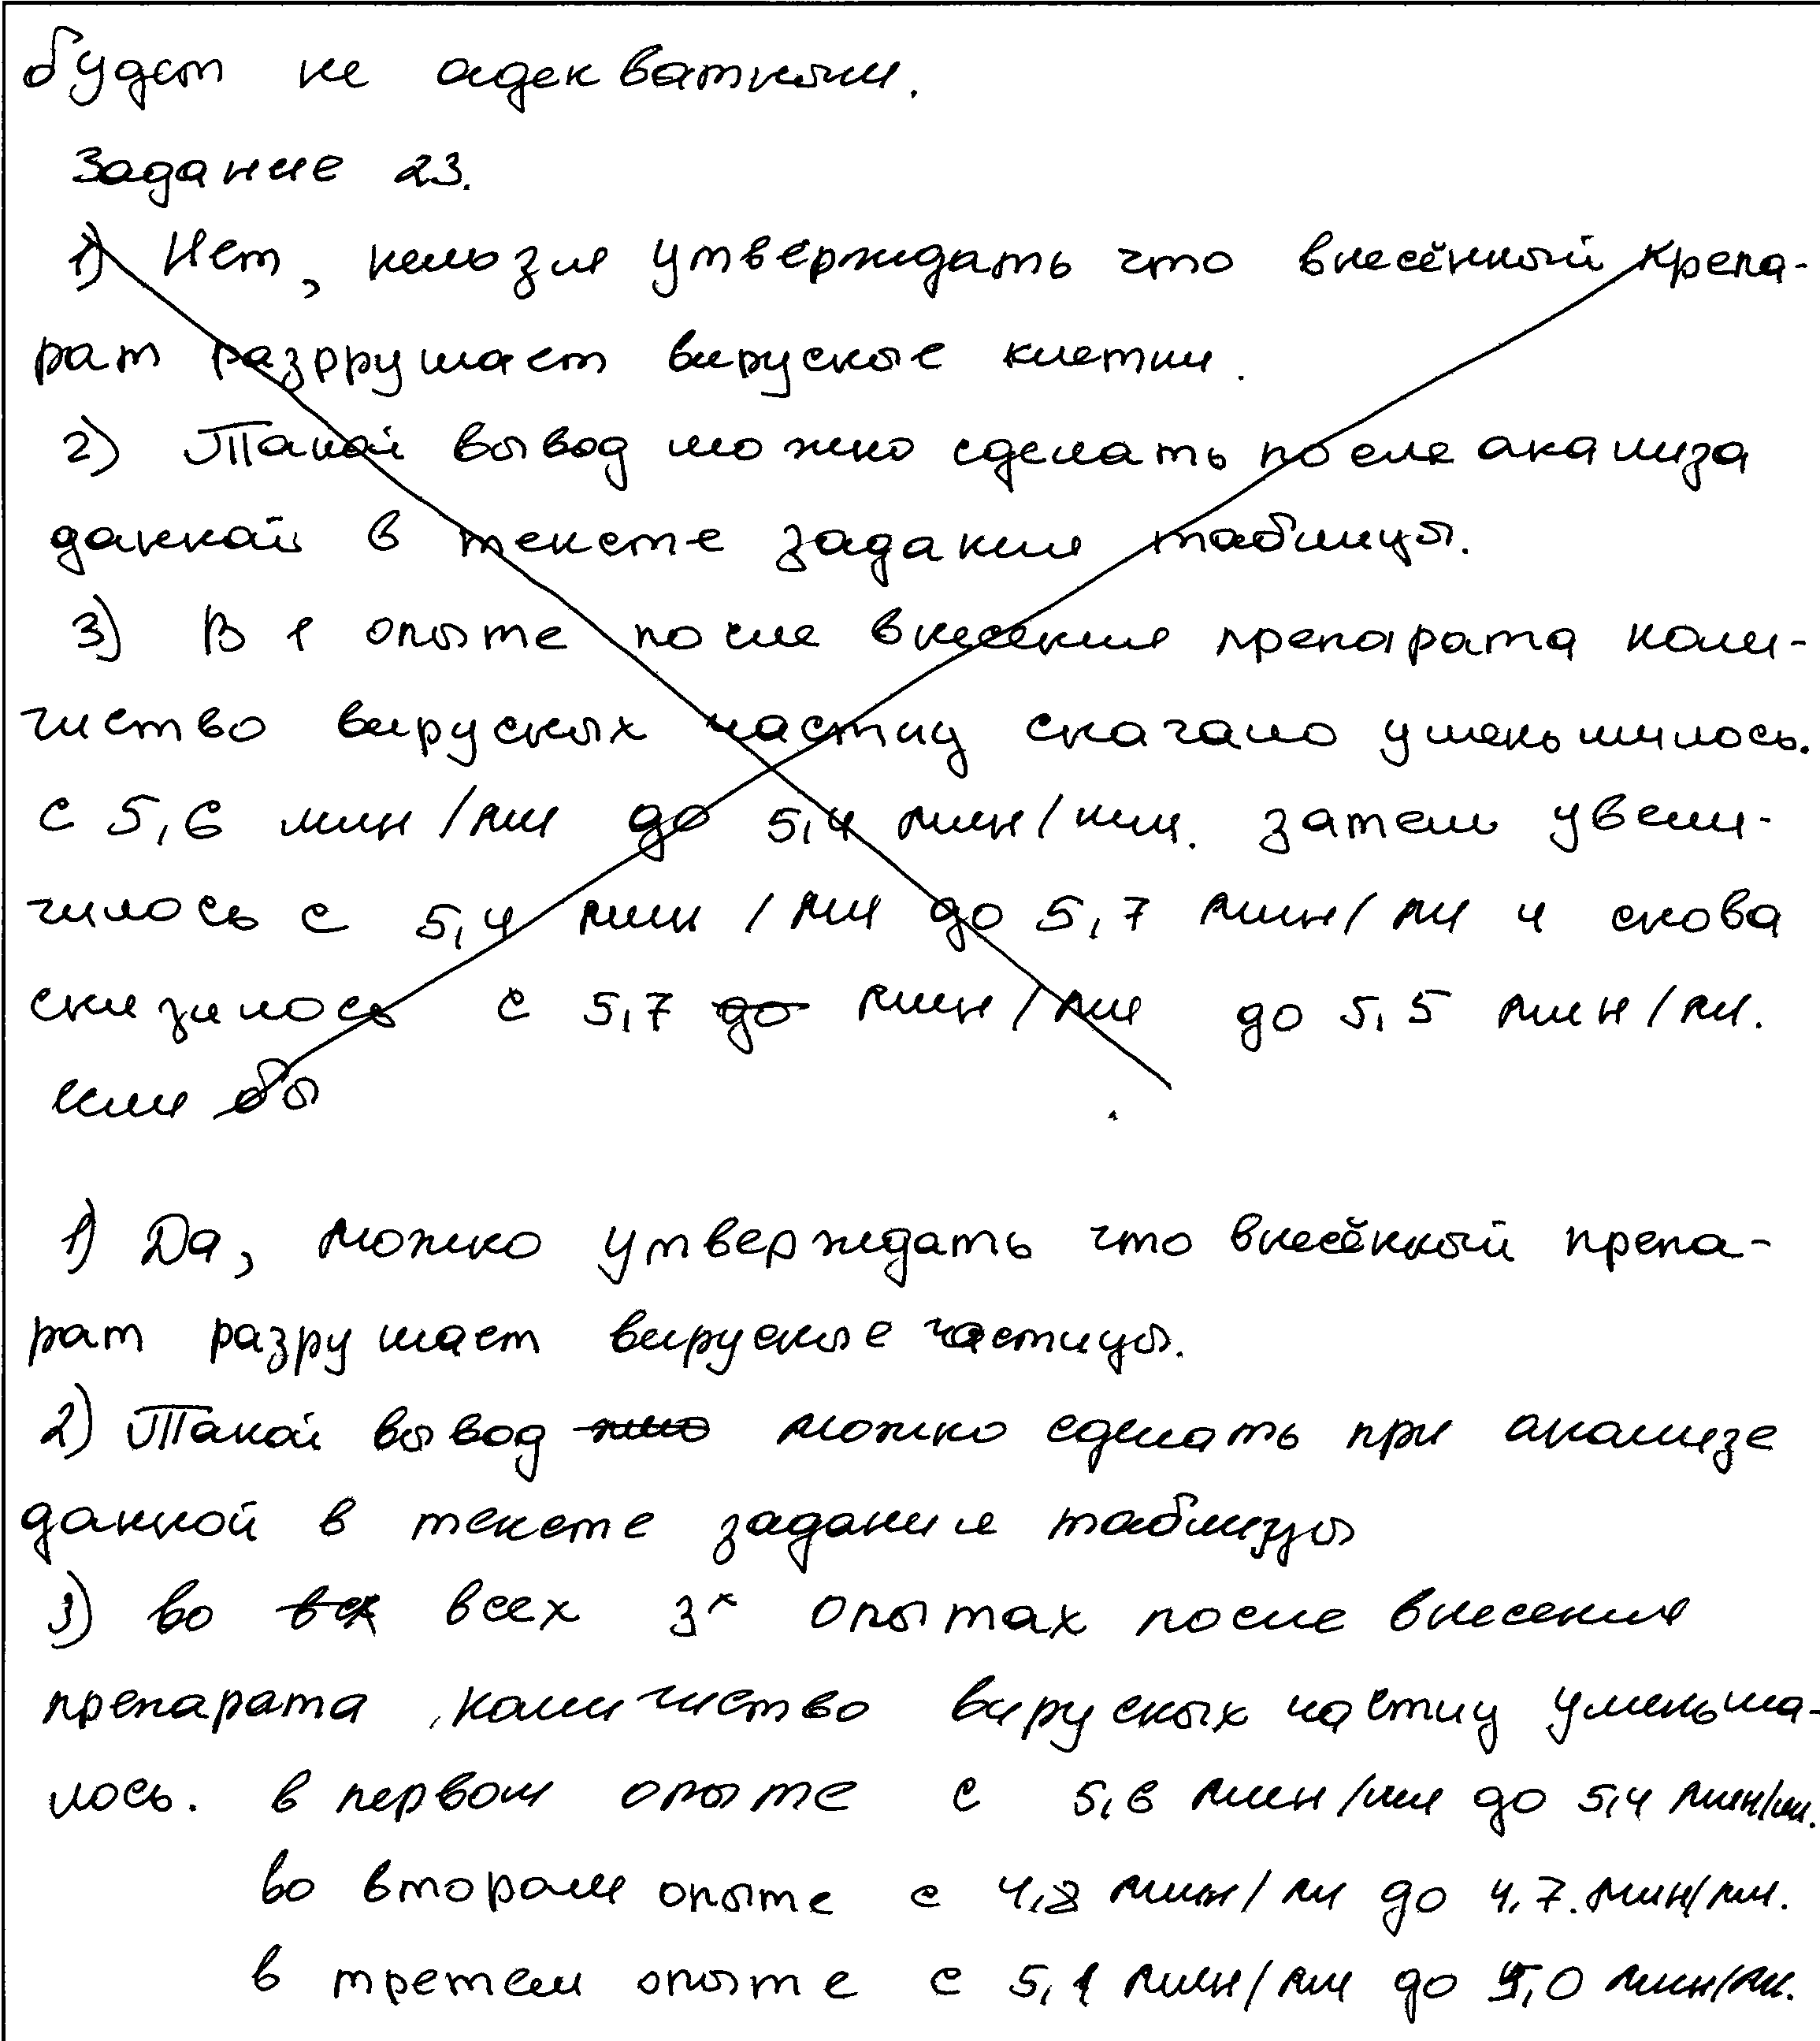 будет не адекватным.
Задание 23.
1) Нет, нельзя утверждать что внесённый препа-
рат разррушает вирусные клетки.
2) Такой вывод можно сделать после анализа
данной в тексте задания таблицы.
3) В 1 опыте после внесения препарата коли-
чиство вирусных частиц сначало уменьшилось.
с 5,6 млн/мл до 5,4 млн/мл. затем увели-
чилось с 5,4 млн/мл до 5,7 млн/мл и снова
снизилось с 5,7 до млн/мл до 5,5 млн/мл.
если бы
1) Да, можно утверждать что внесённый препа-
рат разрушает вирусные частицы.
2) Такой вывод можно сделать при анализе
данной в тексте задания таблицы
3) во всех 3х опытах после внесения
препарата, количиство вирусных частиц уменьша-
лось. в первом опыте с 5,6 млн/мл до 5,4 млн/мл.
во втором опыте с 4,8 млн/мл до 4,7. млн/мл.
в третем опыте с 5,1 млн/мл до 5,0 млн/мл.